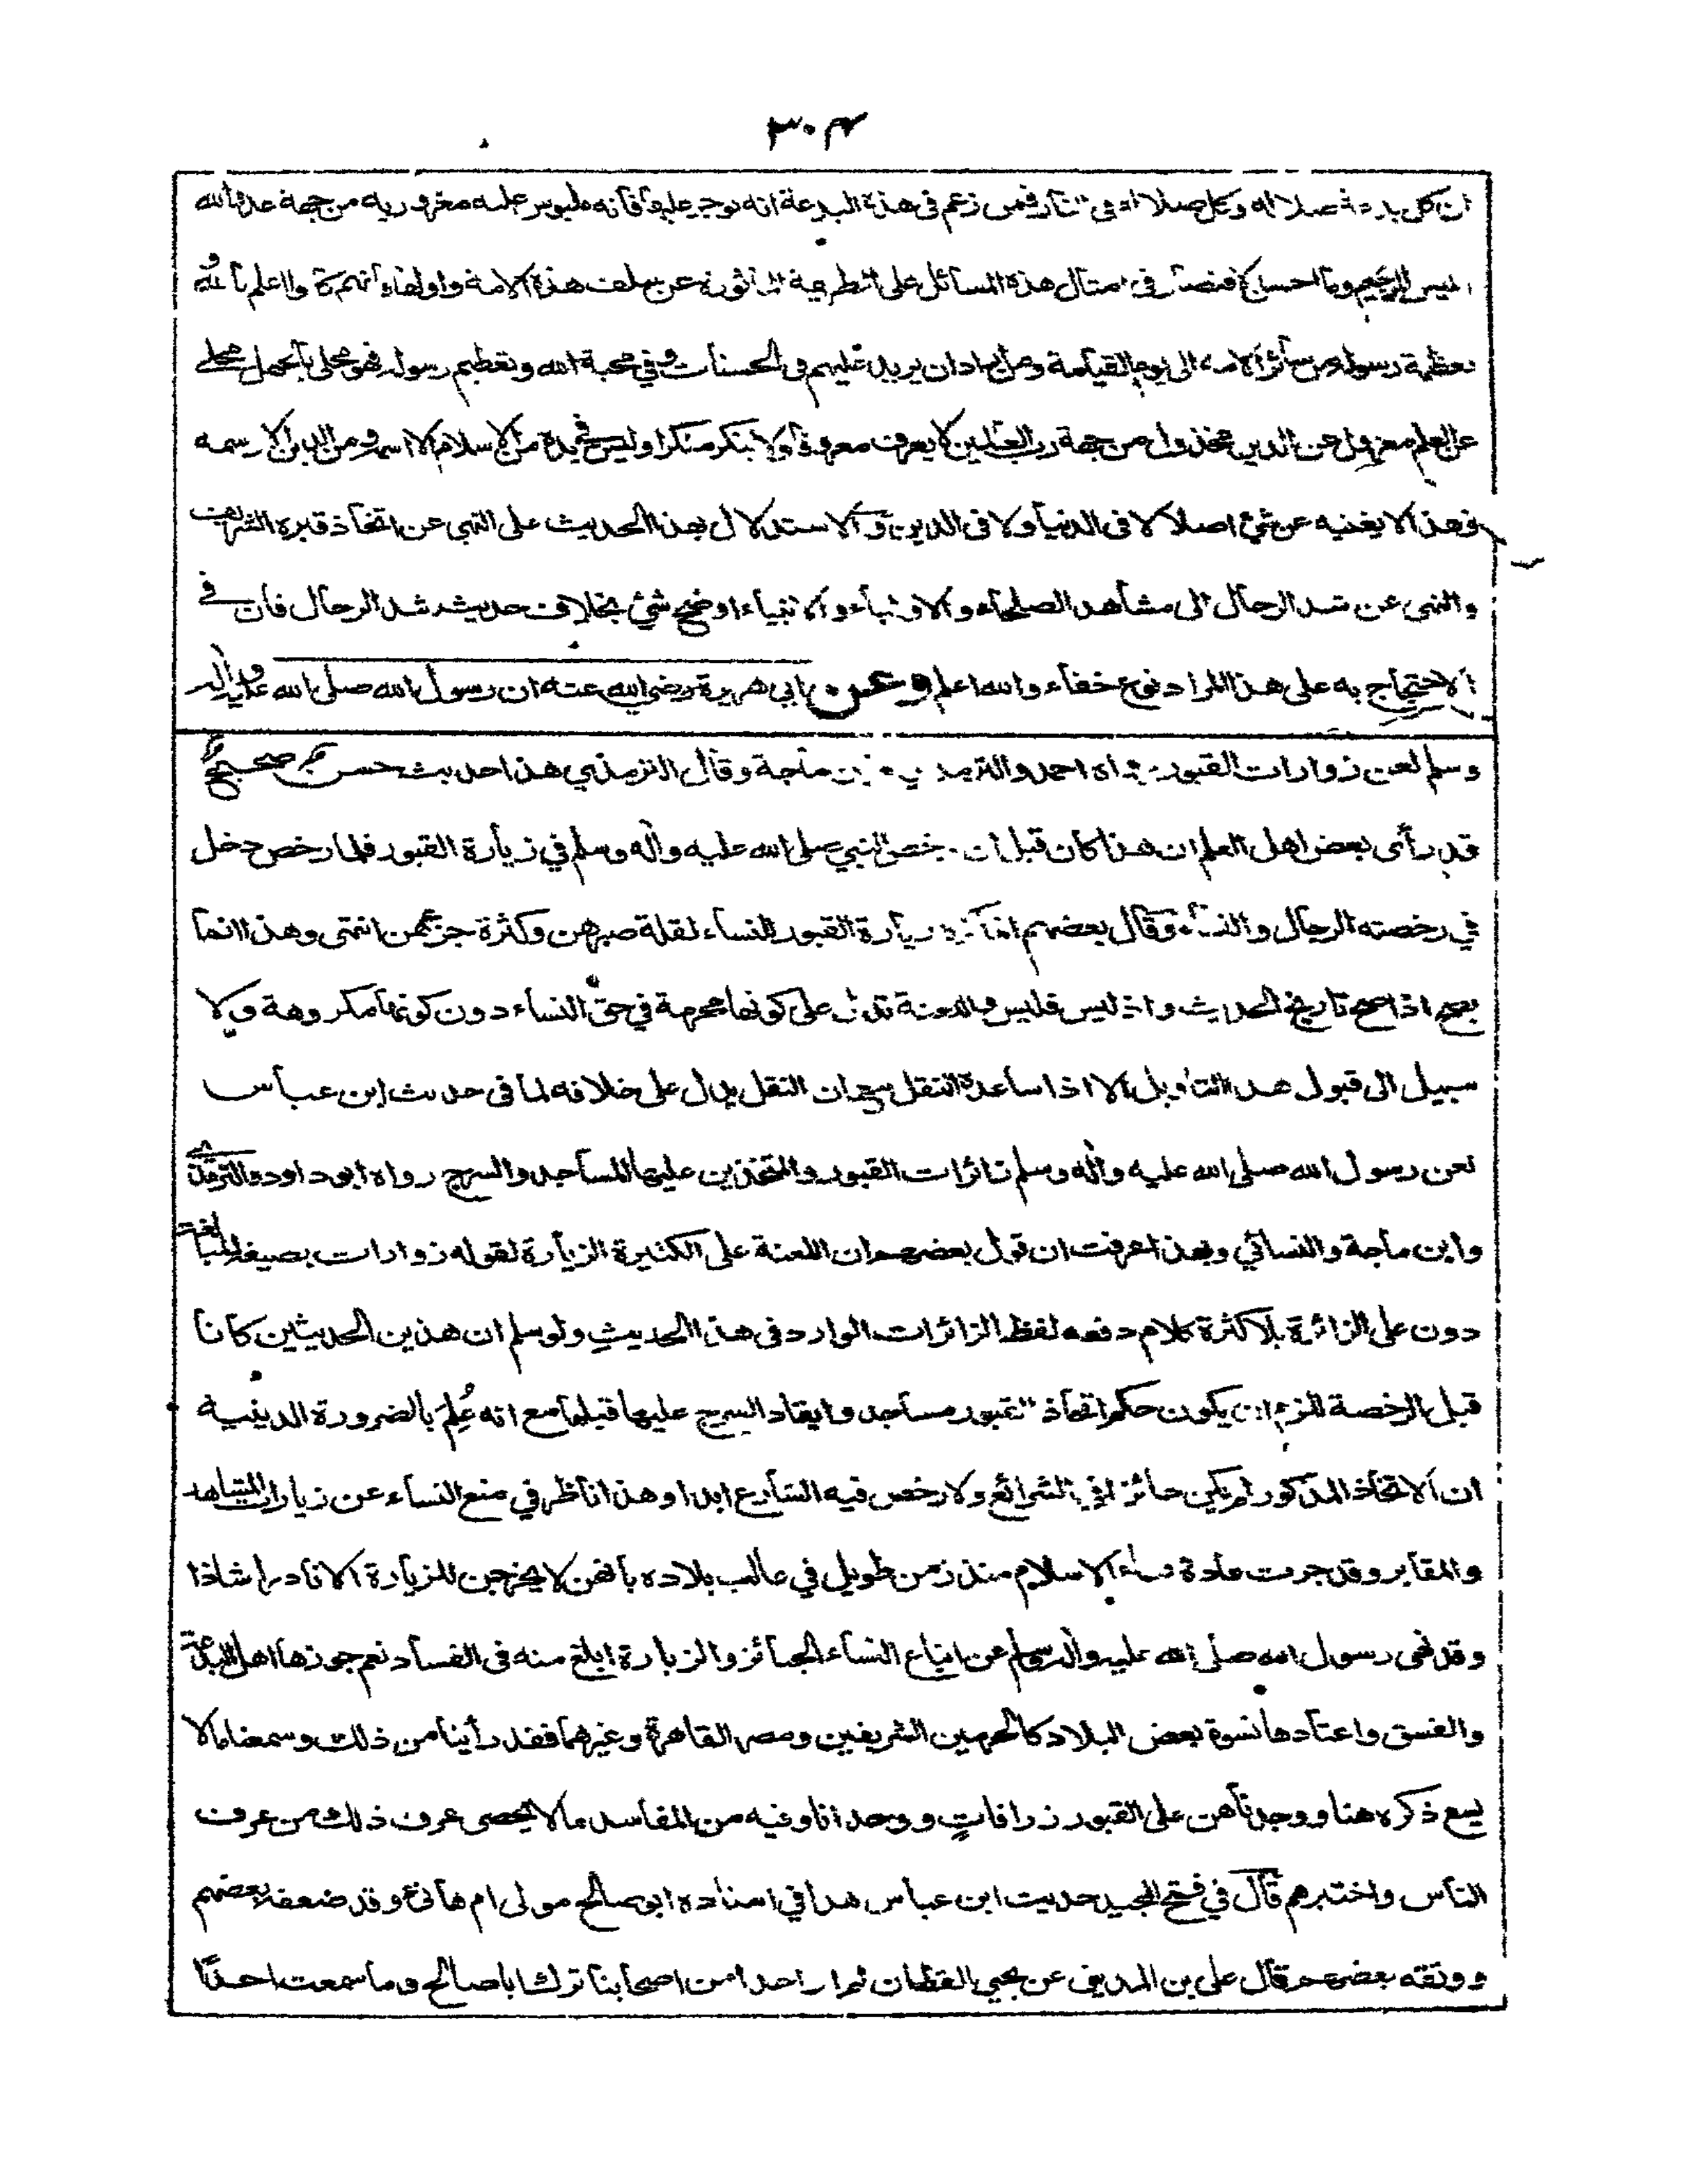 ٣٠٤
ان كل بدعة ضلالة وكل ضلالة في النار فمن زعم في هذه البدعة انه يوجر عليها فانه ملبوس عليه مغرور به من جهة عدو الله
ابليس الرجيم وما احسن الاقتصار في امثال هذه المسائل على الطريقة المأثورة عن سلف هذه الامة واولها وانهم كانوا اعلم بالله
بعظمة رسوله من سائر الامة الى يوم القيامة ومن اراد ان يزيد عليهم في الحسنات وفي محبة الله وتعظيم رسوله فهو محلى بالجهل مخلى
عن العلم معزول عن الدين مخذول من جهة رب العالمين لا يعرف معروفا ولا ينكر منكرا وليس في يده من الاسلام الا اسمه ومن الدين الا رسمه
فهذا لا يغنيه عن شئ اصلا لا في الدنيا ولا في الدين والاستدلال بهذا الحديث على النهي عن اتخاذ قبره الشريف
والنهى عن شد الرحال الى مشاهد الصلحاء والاولياء والانبياء اوضح شئ بخلاف حديث شد الرحال فان في
الاحتجاج به على هذا المراد نوع خفاء والله اعلم وعن ابي هريرة رضي الله عنه ان رسول الله صلى الله عليه واله
وسلم لعن زوارات القبور رواه احمد والترمذي وابن ماجة وقال الترمذي هذا حديث حسن صحيح
قد رأى بعض اهل العلم ان هذا كان قبل ان يرخص النبي صلى الله عليه وآله وسلم في زيارة القبور فلما رخص دخل
في رخصته الرجال والنساء وقال بعضهم انما كره زيارة القبور للنساء لقلة صبرهن وكثرة جزعهن انتهى وهذا انما
يصح اذا صح تاريخ الحديث واذ ليس فليس واللعنة تدل على كونها محرمة في حق النساء دون كونها مكروهة ولا
سبيل الى قبول هذا التاويل الا اذا ساعده النقل مع ان النقل يدل على خلافه لما في حديث ابن عباس
لعن رسول الله صلى الله عليه وآله وسلم زائرات القبور والمتخذين عليها المساجد والسرج رواه ابو داود والترمذي
وابن ماجة والنسائي وبهذا عرفت ان قول بعضهم ان اللعنة على الكثيرة الزيارة لقوله زوارات بصيغة المبالغة
دون على الزائرة بلا كثرة كلام دفعه لفظ الزائرات الوارد في هذا الحديث ولو سلم ان هذين الحديثين كانا
قبل الرخصة للزم ان يكون حكم اتخاذ القبور مساجد وايقاد السرج عليها قبلها مع انه عُلِمَ بالضرورة الدينية
ان الاتخاذ المذكور لم يكن جائزا في الشرائع ولا رخص فيه الشارع ابدا وهذا ناظر في منع النساء عن زيارات المشاهد
والمقابر وقد جرت عادة نساء الاسلام منذ زمن طويل في غالب بلاده بانهن لا يخرجن للزيارة الا نادرا شاذا
وقد نهى رسول الله صلى الله عليه واله وسلم عن اتباع النساء الجنائز والزيارة ابلغ منه في الفساد نعم جوزها اهل البدعة
والفسق واعتادها نسوة بعض البلاد كالحرمين الشريفين ومصر القاهرة وغيرهما فقد رأينا من ذلك وسمعنا مالا
يسع ذكره هنا ووجدناهن على القبور زرافاتٍ ووحدانا وفيه من المفاسد مالا يحصى عرف ذلك من عرف
الناس واختبرهم قال في فتح المجيد حديث ابن عباس هذا في اسناده ابو صالح مولى ام هانئ وقد ضعفه بعضهم
ووثقه بعضهم قال على بن المديني عن يحيي القطان لم ار احدا من اصحابنا ترك ابا صالح وما سمعت احدًا